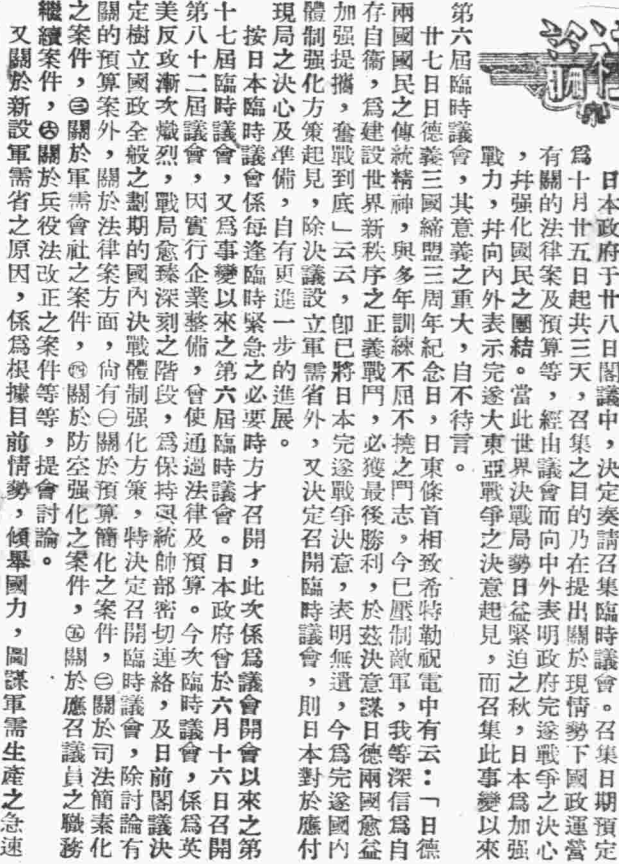 日本政府于廿八日閣議中，決定奏請召集臨時議會。召集日期預定
爲十月廿五日起共三天，召集之目的乃在提出關於現情勢下國政運營
有關的法律案及預算等，經由議會而向中外表明政府完遂戰爭之決心
，幷强化國民之團結。當此世界決戰局勢日益緊迫之秋，日本爲加强
戰力，幷向內外表示完遂大東亞戰爭之決意起見，而召集此事變以來
第六屆臨時議會，其意義之重大，自不待言。
廿七日日德義三國締盟三周年紀念日，日東條首相致希特勒祝電中有云：「日德
兩國國民之傳統精神，與多年訓練不屈不撓之鬥志，今已壓制敵軍，我等深信爲自
存自衞，爲建設世界新秩序之正義戰鬥，必獲最後勝利，於茲決意謀日德兩國愈益
加强提攜，奮戰到底」云云，卽已將日本完遂戰爭決意，表明無遺，今爲完遂國內
體制强化方策起見，除決議設立軍需省外，又決定召開臨時議會，則日本對於應付
現局之決心及準備，自有更進一步的進展。
按日本臨時議會係每逢臨時緊急之必要時方才召開，此次係爲議會開會以來之第
十七屆臨時議會，又爲事變以來之第六屆臨時議會。日本政府曾於六月十六日召開
第八十二屆議會，因實行企業整備，曾使通過法律及預算。今次臨時議會，係爲英
美反攻漸次熾烈，戰局愈臻深刻之階段，爲保持與統帥部密切連絡，及日前閣議決
定樹立國政全般之劃期的國內決戰體制强化方策，特決定召開臨時議會，除討論有
關的預算案外，關於法律案方面，尙有㊀關於預算簡化之案件，㊁關於司法簡素化
之案件，㊂關於軍需會社之案件，㊃關於防空强化之案件，㊄關於應召議員之職務
繼續案件，㊅關於兵役法改正之案件等等，提會討論。
又關於新設軍需省之原因，係爲根據目前情勢，傾舉國力，圖謀軍需生產之急速